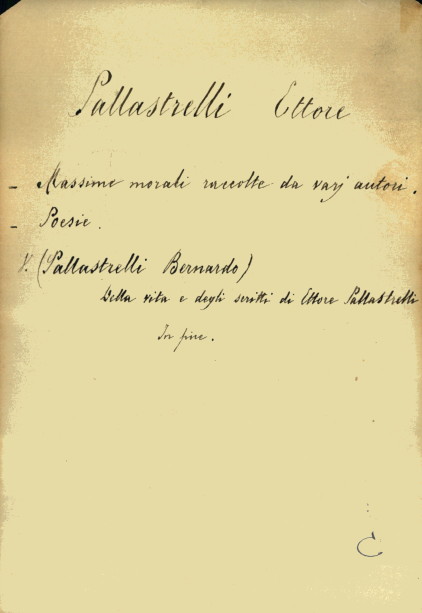 Pallastrelli Ettore
- Massime morali raccolte da varj autori.
- Poesie.
V. (Pallastrelli Bernardo)
Della vita e degli scritti di Ettore Pallastrelli
In fine.
C